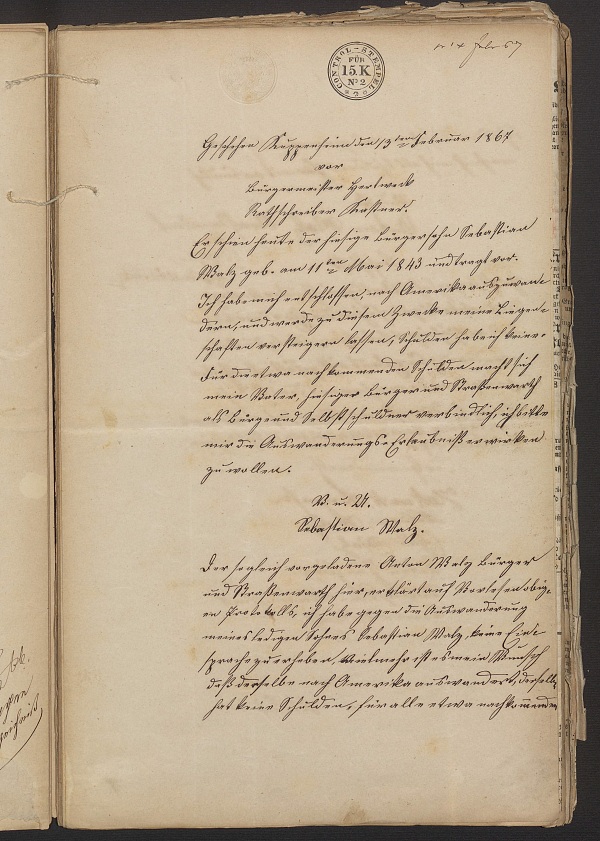 CONTROL-STEMPEL
FÜR
15 K
No 2
Febr 67
Geschehen Kuppenheim den 13ten Februar 1867
vor
Bürgermeister Hertweck
Rathschreiber Kastner.
Erschien heute der hiesige Bürgersohn Sebastian
Walz geb. am 11ten Mai 1843 und tragt vor.
Ich habe mich entschlossen, nach Amerika auszuwan-
dern, und werde zu diesem Zwecke meine Liegen-
schaften versteigern lassen, Schulden habe ich keine.
Für die etwa nachkommenden Schulden macht sich
mein Vater, hiesiger Bürger und Straßenwarth
als Bürge und Selbstschuldner verbindlich, ich bitte
mir die Auswanderungs-Erlaubniß erwirken
zu wollen.
V. u. U.
Sebastian Walz.
Der sogleich vorgeladene Anton Walz Bürger
und Straßenwarth hier, erklärt auf Vorlesen obig-
en Protokolls, ich habe gegen die Auswanderung
meines ledigen Sohnes Sebastian Walz, keine Ein-
sprache zu erheben, vielmehr ist es mein Wunsch
daß derselbe nach Amerika auswandert, derselbe
hat keine Schulden, für alle etwa nachkommenden